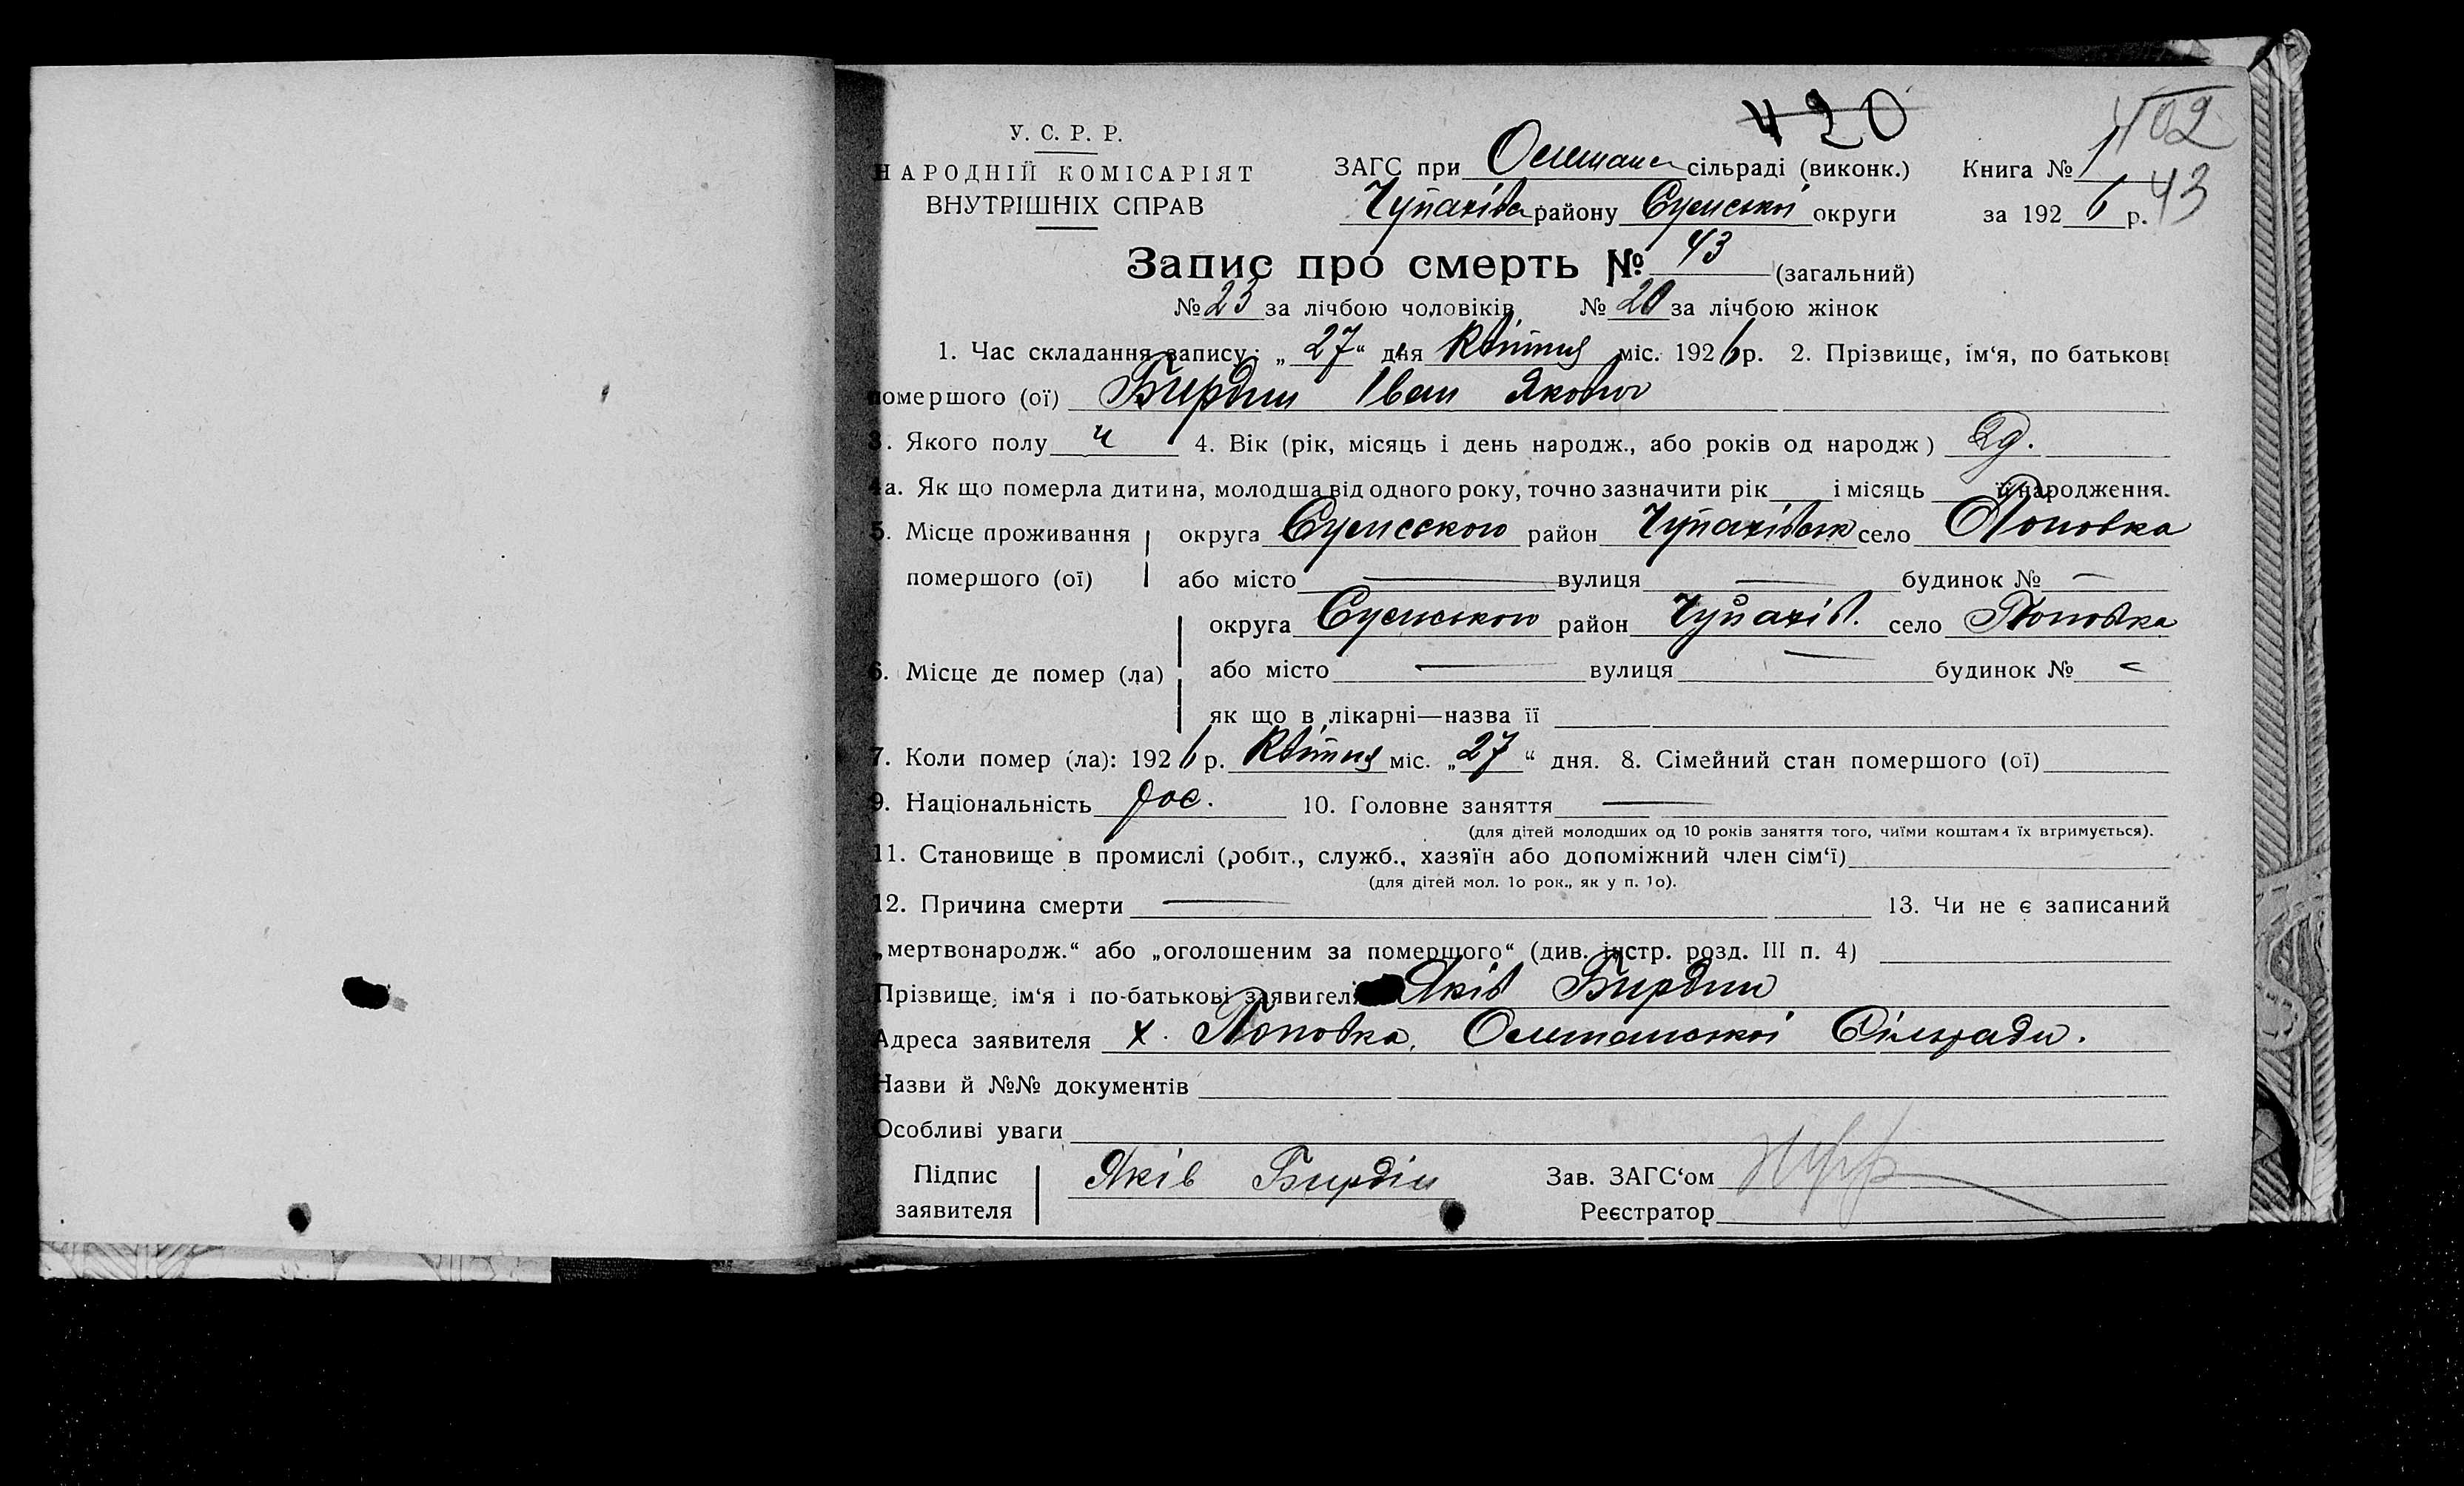 420
402
У. С. Р. Р.
НАРОДНІЙ КОМІСАРІЯТ
ВНУТРІШНІХ СПРАВ
ЗАГС при сільраді (виконк.) Книга № 1
43
Чупахівск району Сумської округи за 1926 р.
Запис про смерть № 43 (загальний)
№ 23 за лічбою чоловіків № 20 за лічбою жінок
1. Час складання запису: „27“ дня Квітня міс. 1926 р. 2. Прізвище, ім‘я, по батькові
помершого (ої) Бирдин Іван Якович
3. Якого полу ч 4. Вік (рік, місяць і день народж., або років од народж) 2д.
4а. Як що померла дитина, молодша від одного року, точно зазначити рік і місяць її народження.
5. Місце проживання округа район село Поповка
помершого (ої) або місто — вулиця — будинок № —
округа Сумською район Чупахів. село Поповка
6. Місце де помер (ла) або місто — вулиця — будинок № —
як що в лікарні—назва її
7. Коли помер (ла): 1926 р. Квітня міс. „27“ дня. 8. Сімейний стан помершого (ої)
9. Національність рос. 10. Головне заняття —
(для дітей молодших од 10 років заняття того, чиїми коштами їх втримується).
11. Становище в промислі (робіт., служб., хазяїн або допоміжний член сім‘ї)
(для дітей мол. 10 рок., як у п. 10).
12. Причина смерти — 13. Чи не є записаний
„мертвонародж.“ або „оголошеним за помершого“ (див. інстр. розд. III п. 4)
Прізвище, ім‘я і по-батькові заявителя Яків Бирдин
Адреса заявителя х. Поповка, Сільради.
Назви й №№ документів
Особливі уваги
Підпис Яків Бирдін Зав. ЗАГС‘ом
заявителя Реєстратор